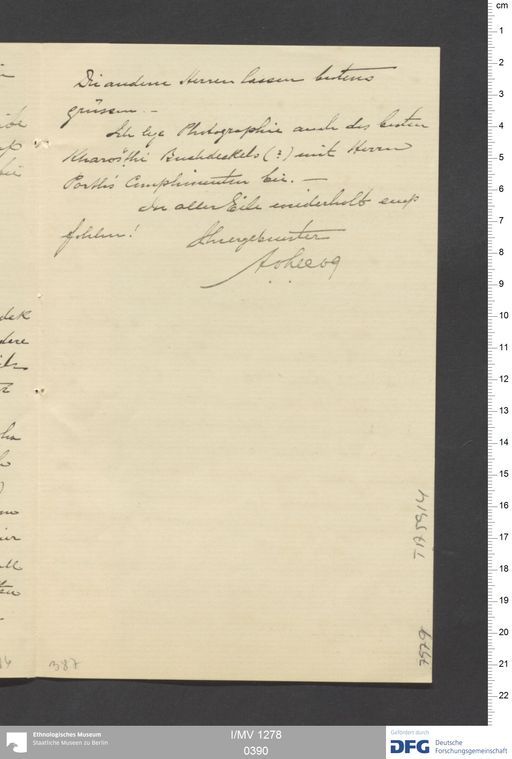 Die andern Herren lassen bestens
grüssen. –
Ich lege Photographie auch des besten
Kharoṣṭhi Buchdeckels (?) mit Herrn
Porths Complimenten bei. –
In aller Eile wiederholt emp
fohlen! Ihr ergebenster
AvLeCoq
TA 759/14
7529
387
cm
1
2
3
4
5
6
7
8
9
10
11
12
13
14
15
16
17
18
19
20
21
22
Ethnologisches Museum
Staatliche Museen zu Berlin
I/MV 1278
0390
Gefördert durch
DFG Deutsche
Forschungsgemeinschaft